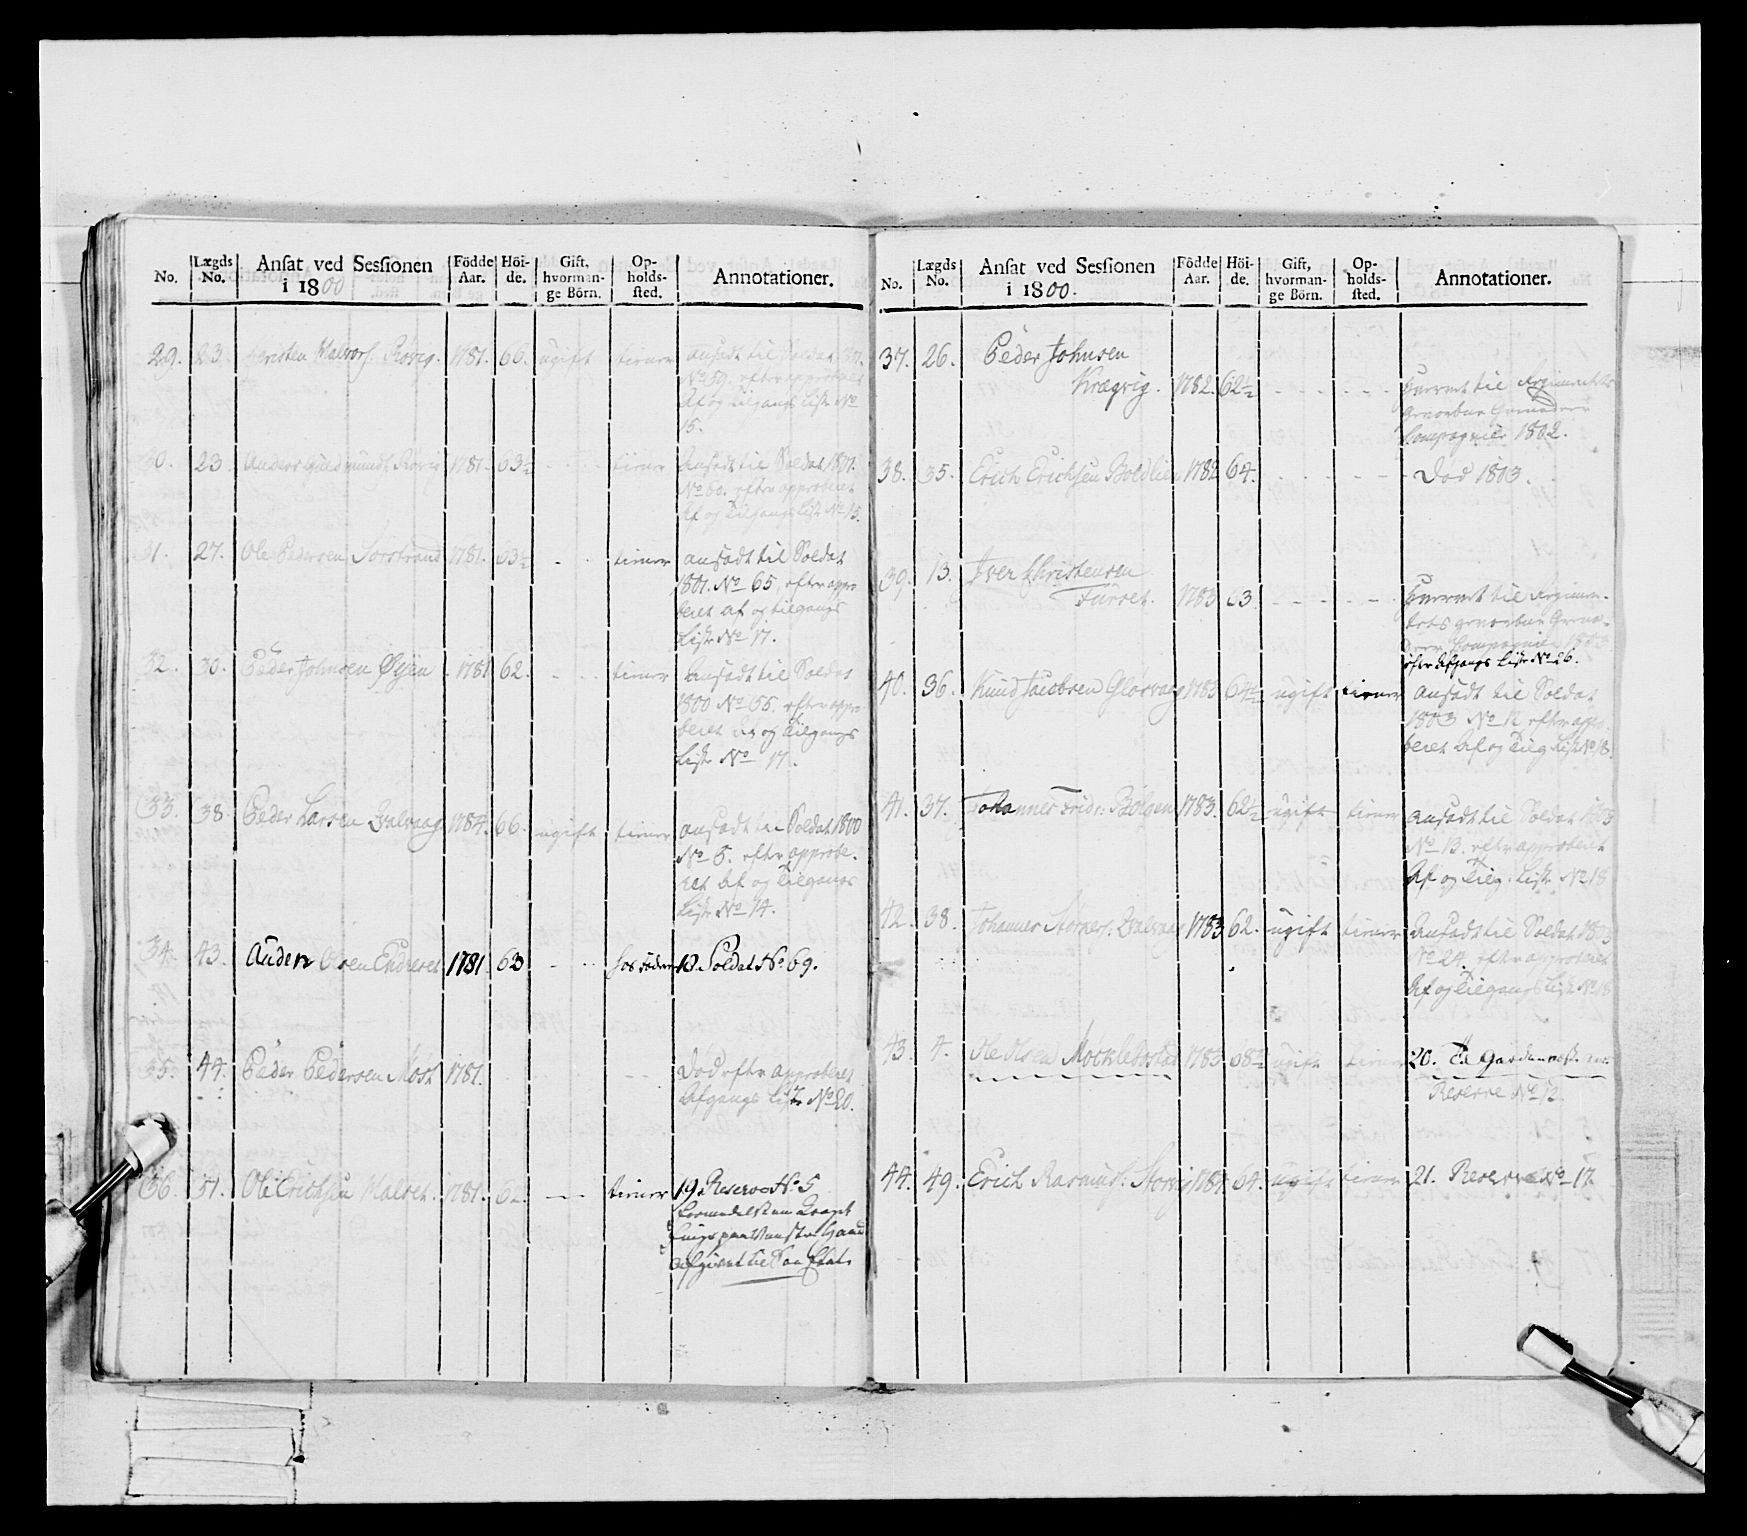 No.
Lægds No.
Ansat ved Sessionen i 1800
Födde Aar.
Höi-de.
Gift, hvorman-ge Börn.
Op-holds-sted.
Annotationer.
29. 23. Christen Halvors. Røvig. 1781. 66. ugift tiener ansadt til Soldat
No 59. efter approberet
Af og Tilgangs Liste No
15.
30. 23 Anders Guldmunds. Røvig 1781. 63½ - - tiener Ansadt til Soldat 1801.
No 60. efter approberet
Af og Tilgangs Liste No 15.
31. 27. Ole Pedersen Sorstrand 1781. 63½ - - tiener ansadt til Soldat
1801. No 65, efter appro
beret af og tilgangs
Liste No 17.
32. 30. Peder Johnsen Øyen 1781 62. - - tiener Ansadt til Soldat
1800 No 66. efter appro
beret Af og Tilgangs
Liste No 17.
33. 38. Peder Larsen Dalvaag 1784. 66. ugift tiener ansadt til Soldat 1800
No 6. efter approbe-
ret Af og Tilgangs
Liste No 14.
34. 43. Anders Olsen Endreset 1781 63 - - hos Fader 18. Soldat No 69.
35. 44. Peder Pedersen Møst 1781. - - Död efter approberet
Afgangs Liste No 20.
36. 51. Ole Erichsen Malset. 1781. 62. - - tiener 19. Reserve No 5
Formedelst en
paa Venstre Haand
afgivet til San Etat.
No.
Lægds No.
Ansat ved Sessionen i 1800.
Födde Aar.
Höi-de.
Gift, hvorman-ge Börn.
Op-holds-sted.
Annotationer.
37. 26. Peder Johnsen
Krægvig. 1782. 62½ - - - - hvervet til Regimentets
gevorbne Grenadeer
Compagnie 1802.
38. 35. Erich Erichsen Boldlien 1782 64. - - - - Död 1803.
39. 13. Iver Christensen
Furset. 1783 63 - - - - hvervet til Regimen-
tets gevorbne Grena-
deer Compagnie 1803
efter Afgangs Liste No 26.
40. 36. Knud Jacobsen Glørvaag 1783 64½ ugift tiener ansadt til Soldat
1803 No 12 efter appro
beret Af og Tilg Liste No 18.
41. 37. Johannes Fridr: Bølgen 1783. 62½ ugift tiener ansadt til Soldat 1803
No 13. efter approberet
Af og Tilg. Liste No 18
42. 38. Johannes Dalvaag 1783 62. ugift tiener Ansadt til Soldat 1803
No 24 efter approberet
Af og Tilgangs Liste No 18
43. 4. Ole Olsen Mocklebostad 1783 68½ ugift tiener 20.
Reserve No 12.
44. 49. Erich Rasmus: Storvig 1784. 64. ugift tiener 21. Reserve No 17